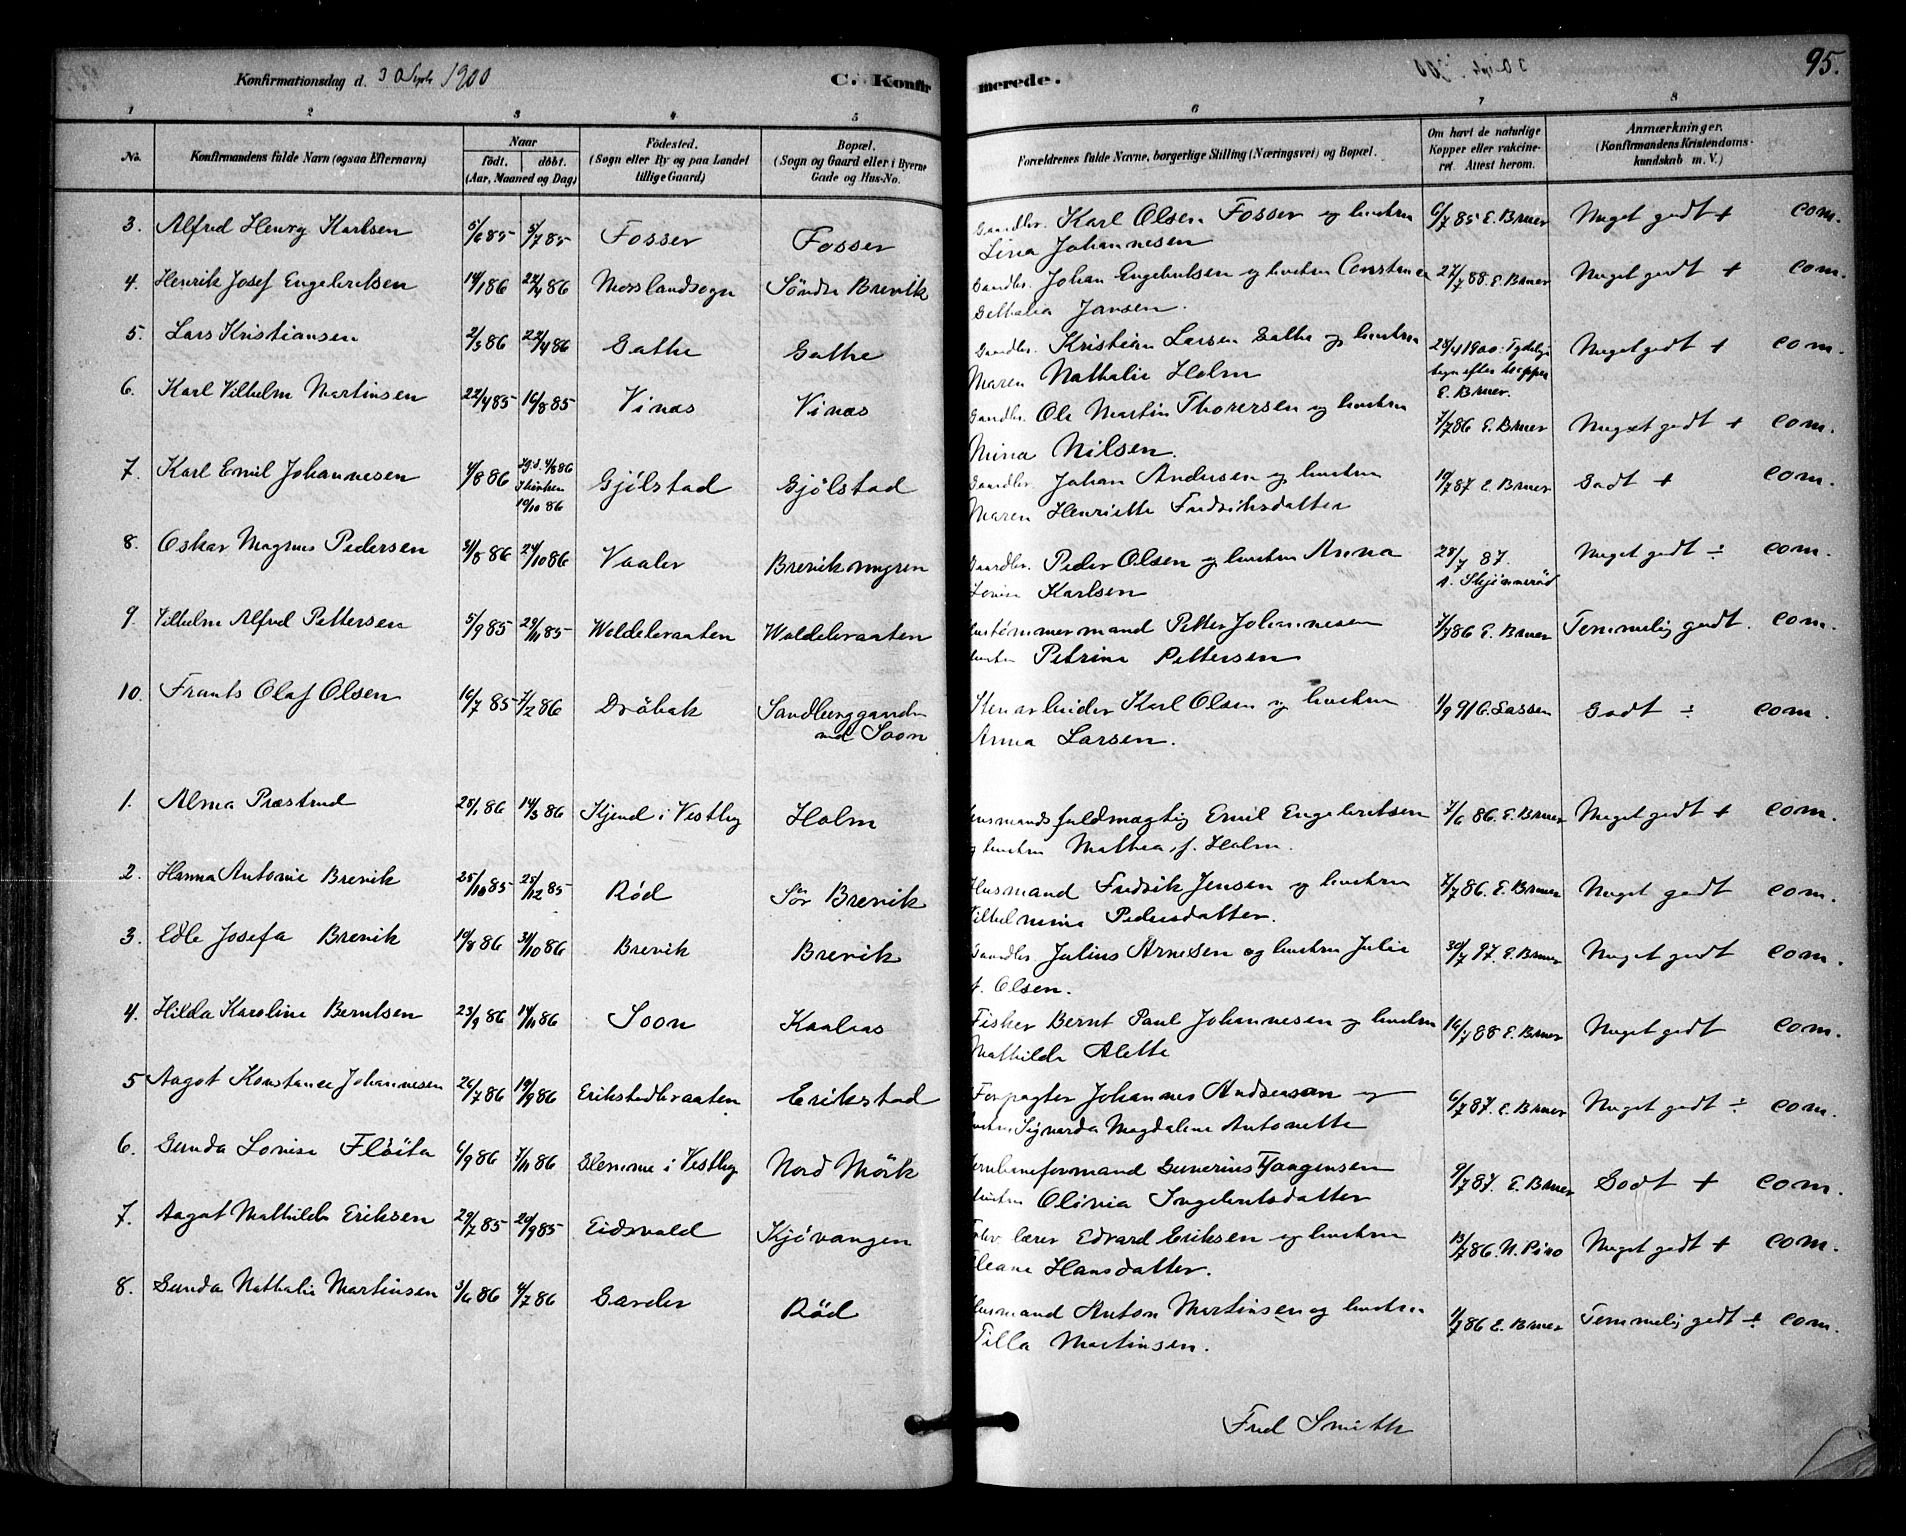 Konfirmationsdag d. 30 Septr 1900
C. Konfirmerede.
95.
1 2 3 4 5 6 7 8
No. Konfirmandens fulde Navn (ogsaa Efternavn) Naar født. døbt. (Aar, Maaned og Dag) Fødested. (Sogn eller By og paa Landet tillige Gaard) Bopæl. (Sogn og Gaard eller i Byerne Gade og Hus-No. Forældrenes fulde Navne, borgerlige Stilling (Næringsvei) og Bopæl. Om havt de naturlige Kopper eller vakcineret. Attest herom. Anmærkninger. (Konfirmandens Kristendomskundskab m. V.)
3. Alfred Henry Karlsen 5/6 85 5/7 85 Fosser Fosser Gaardbr. Karl Olsen Fosser og hustru
Lina Johannesen 6/7 85 E. Bruer Meget godt + com.
4. Henrik Josef Engebretsen 14/1 86 22/4 86 Søndre Brevik Gaardbr. Johan Engebretsen og hustru Constance
Jansen. 27/7 88. E. Bruer Meget godt + com.
5. Lars Kristiansen 2/3 86 22/4 86 Gathe Gathe Gaardbr. Kristian Larsen Gathe og hustru
Maren Nathalie Holm 28/4 1900. Tydelige
tegn efter kopper
E. Bruer. Meget godt + com.
6. Karl Vilhelm Martinsen 22/4 85 16/8 85 Vinæs Vinæs Gaardbr. Ole Martin Thorersen og hustru
Mina Nilsen. 1/7 86 E. Bruer Meget godt + com.
7. Karl Emil Johannesen 4/8 86 10/10 86 Gjølstad Gjølstad Gaardbr. Johan Andersen og hustru
Maren Henriette Fredriksdatter 19/7 87 E. Bruer Godt + com.
8. Oskar Magnus Pedersen 31/8 86 24/10 86 Vaaler Brevikmyren Gaardbr. Peder Olsen og hustru Anna
Lovise Karlsen 28/7 87.
A. Skjønnerød Meget godt ÷ com.
9. Vilhelm Alfred Pettersen 5/9 85 29/11 85 Woldebraaten Woldebraaten Hustømmermand Petter Johannesen
hustru Petrine Pettersen 7/7 86 E. Bruer Temmelig godt. com.
10. Frants Olaf Olsen 16/7 85 7/2 86 Drøbak Sandberggaarden
ved Soon Stenarbeider Karl Olsen og hustru
Anna Larsen. 1/9 91 C. Lassen Godt ÷ com.
1. Alma Præstrud 28/1 86 14/3 86 Kjend i Vestby Holm Lensmandsfuldmægtig Emil Engebretsen
og hustru Mathea, f. Holm. 7/6 86. E. Bruer Meget godt + com.
2. Hanna Antonie Brevik 25/10 85 25/12 85 Rød Sør Brevik Husmand Fredrik Jensen og hustru
Vilhelmine Pedersdatter. 7/7 86. E. Bruer Meget godt com.
3. Edle Josefa Brevik 19/8 86 31/10 86 Brevik Brevik Gaardbr. Julius Arnesen og hustru Julie
f. Olsen. 30/7 97. E. Bruer Meget godt com.
4. Hilda Karoline Berntsen 23/9 86 14/11 86 Soon Kaalaas Fisker Bernt Paul Johannesen og hustru
Mathilde Alette 16/7 88 E. Bruer Meget godt com.
5 Aagot Konstance Johannesen 26/7 86 19/9 86 Erikstadbraaten Erikstad Forpagter Johannes Andreasen og
hustru Signarda Magdalene Antonette 6/7 87. E. Bruer Meget godt ÷ com.
6. Gunda Lovise Fløita 6/9 86 7/11 86 Slemme i Vestby Nord Mørk Jernbaneformand Gunerius Haagensen
hustru Olivia Ingebretsdatter 9/7 87. E. Bruer Godt + com.
7. Aagot Mathilde Eriksen 29/7 85 20/9 85 Eidsvold Kjøvangen lærer Edvard Eriksen og hustru
Eleane Hansdatter. 13/7 86. Meget godt + com.
8. Gunda Nathalie Martinsen 3/6 86 4/7 86 Garder Rød Husmand Anton Martinsen og hustru
Tilla Martinsen. 1/7 86 E. Bruer Temmelig godt ÷ com.
Fred Smith